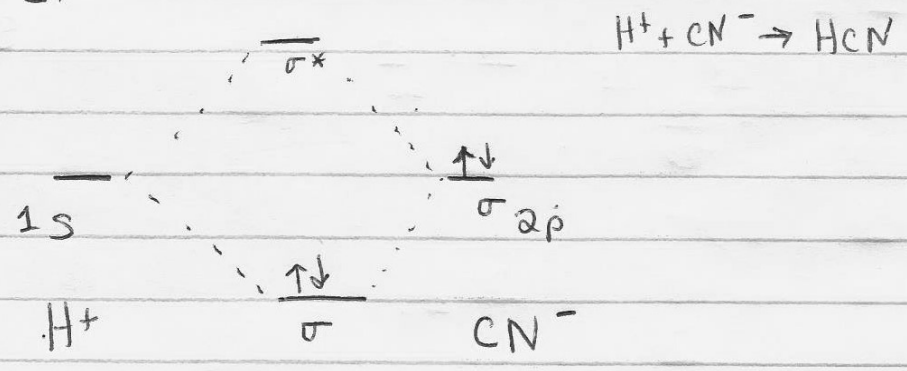 H⁺ + CN⁻ → HCN
σ*
↑↓
1s
σ 2p
↑↓
H⁺
σ
CN⁻